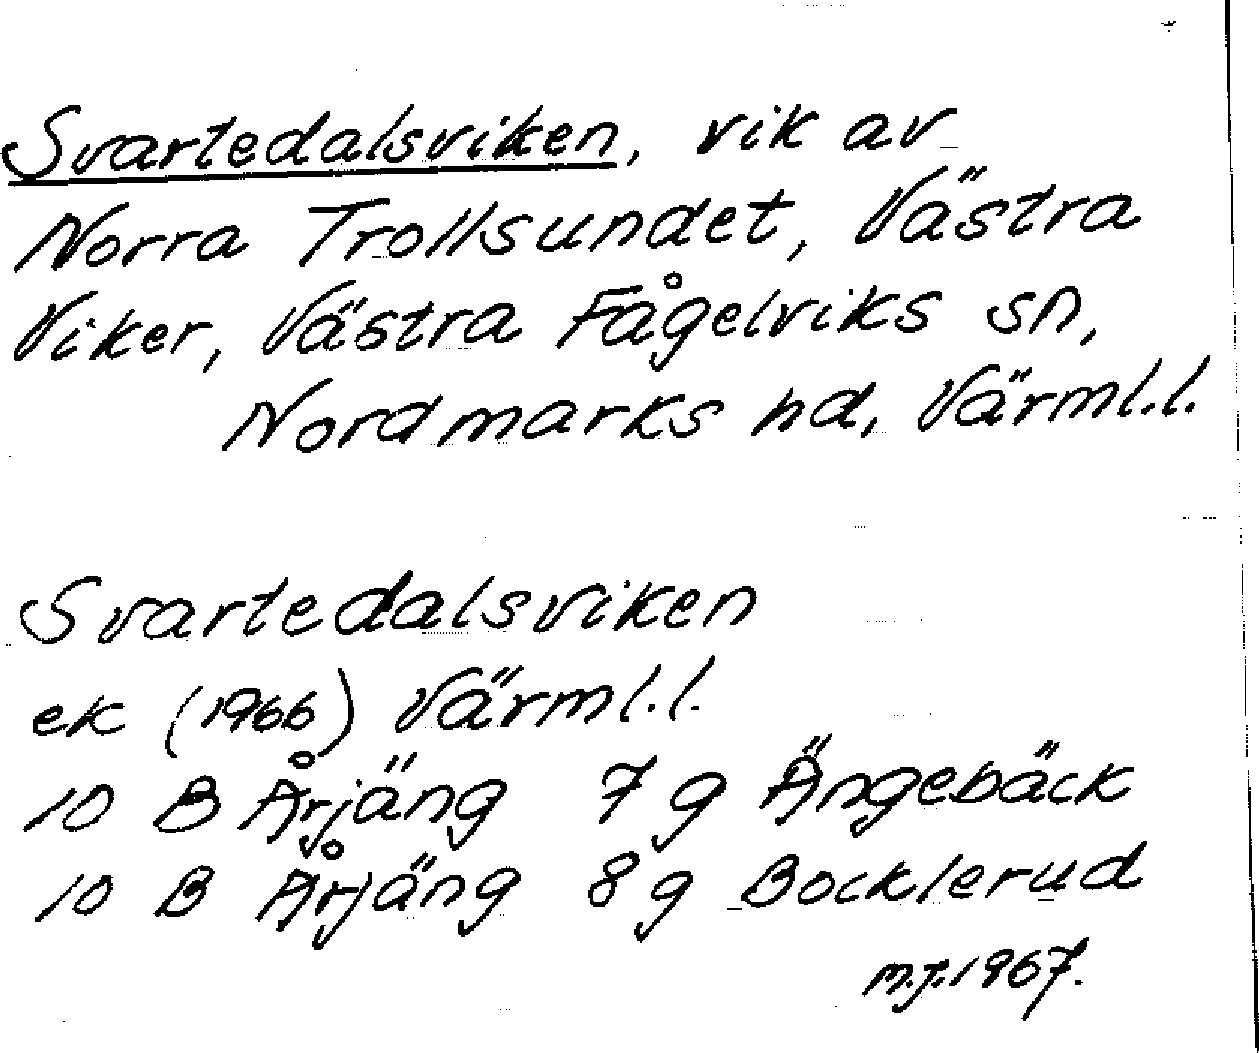 Svartedalsviken, vik av
Norra Trollsundet, Västra
Viker, Västra Fågelviks sn,
Nordmarks hd, Värml.l.
Svartedalsviken
ek (1966) Värml.l.
10 B Årjäng 7 g Ängebäck
10 B Årjäng 8 g Bocklerud
m.j. 1967.